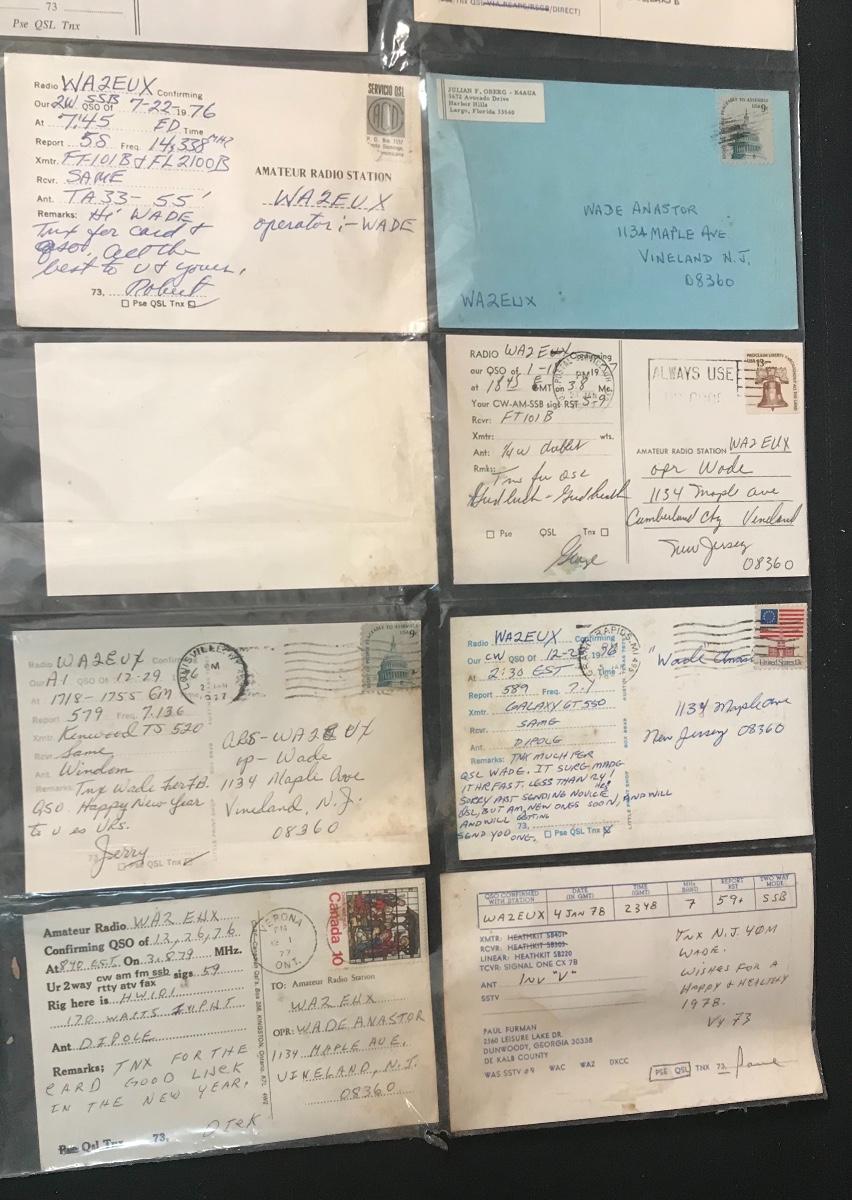 73
Pse QSL Tnx
Radio WA2EUX Confirming
Our 2W SSB QSO Of 7-22-1976
At 7:45 ED Time
Report 58 Freq. 14,338 MHZ
Xmtr. FT101B & FL2100B
Rcvr. SAME
Ant. TA33 - 55'
Remarks: Hi WADE
Tnx for card &
QSO, all the
best to U & yours,
Robert
73,
☐ Pse QSL Tnx ☐
SERVICIO QSL
AMATEUR RADIO STATION
WA2EUX
operator:- WADE
JULIAN F. OBERG - K4AUA
5672 Avocado Drive
Harbor Hills
Largo, Florida 33540
USA 9c
WADE ANASTOR
1134 MAPLE AVE.
VINELAND N.J.
08360
WA2EUX
RADIO WA2EUX Confirming
our QSO of 1-1 1977
at 1845 GMT on 3.8 Mc.
Your CW-AM-SSB sigs RST 5-9
Rcvr: FT101B
Xmtr: wts.
Ant: 1/4 W doublet
Rmks: Tnx for QSL
Good luck - Good health
☐ Pse QSL Tnx ☐
George
ALWAYS USE
ZIP CODE
USA 13c
AMATEUR RADIO STATION WA2EUX
opr Wade
1134 Maple Ave
Cumberland Cty Vineland
New Jersey
08360
Radio WA2EUX
Our A1 QSO Of 12-29
At 1718-1755 GM
Report 579 Freq. 7.136
Xmtr. Kenwood TS 520
Rcvr. Same
Ant. Windom
Remarks: Tnx Wade Fer FB
QSO. Happy New Year
to U es URs.
Jerry
73
☐ Pse QSL Tnx
LOUISVILLE, KY
1977
USA 9c
ARS-WA2EUX
op-Wade
1134 Maple Ave
Vineland, N.J.
08360
Radio WA2EUX Confirming
Our CW QSO Of 12-2 1976
At 2:30 EST Time
Report 589 Freq. 7.1
Xmtr. GALAXY GT 550
Rcvr. SAME
Ant. DIPOLE
Remarks: TNX MUCH FER
QSL WADE. IT SURE MADE
IT HR FAST. LESS THAN 24 Hrs!
SORRY ABT SENDING NOVICE
QSL, BUT AM GETTING NEW ONES SOON, AND WILL
SEND YOU ONE.
73,
☐ Pse QSL Tnx
RAPIDS, MI
"Wade
1134 Maple Ave
New Jersey 08360
Amateur Radio WA2EHX
Confirming QSO of 12,26,76
At 840 EST. On 3.879 MHz.
Ur 2way cw am fm ssb rtty atv fax sigs 59
Rig here is HW101
170 WATTS INPUT
Ant DIPOLE
Remarks; TNX FOR THE
CARD GOOD LUCK
IN THE NEW YEAR.
DIRK
Pse Qsl Tnx 73,
VERONA
ONT.
Canada 10
TO: Amateur Radio Station
WA2EHX
OPR: WADE ANASTOR
1134 MAPLE AVE.
VINELAND, N.J.
08360
QSO CONFIRMED WITH STATION DATE (IN GMT) TIME (GMT) MHz BAND REPORT RST TWO WAY MODE
WA2EUX 4 JAN 78 2348 7 59+ SSB
XMTR: HEATHKIT SB401
RCVR: HEATHKIT SB303
LINEAR: HEATHKIT SB220
TCVR: SIGNAL ONE CX 7B
ANT INV "V"
SSTV
TNX N.J. 40M
WADE.
WISHES FOR A
HAPPY & HEALTHY
1978.
Vy 73
PAUL FURMAN
2360 LEISURE LAKE DR.
DUNWOODY, GEORGIA 30338
DE KALB COUNTY
WAS SSTV #9 WAC WAZ DXCC
PSE QSL TNX 73, Paul